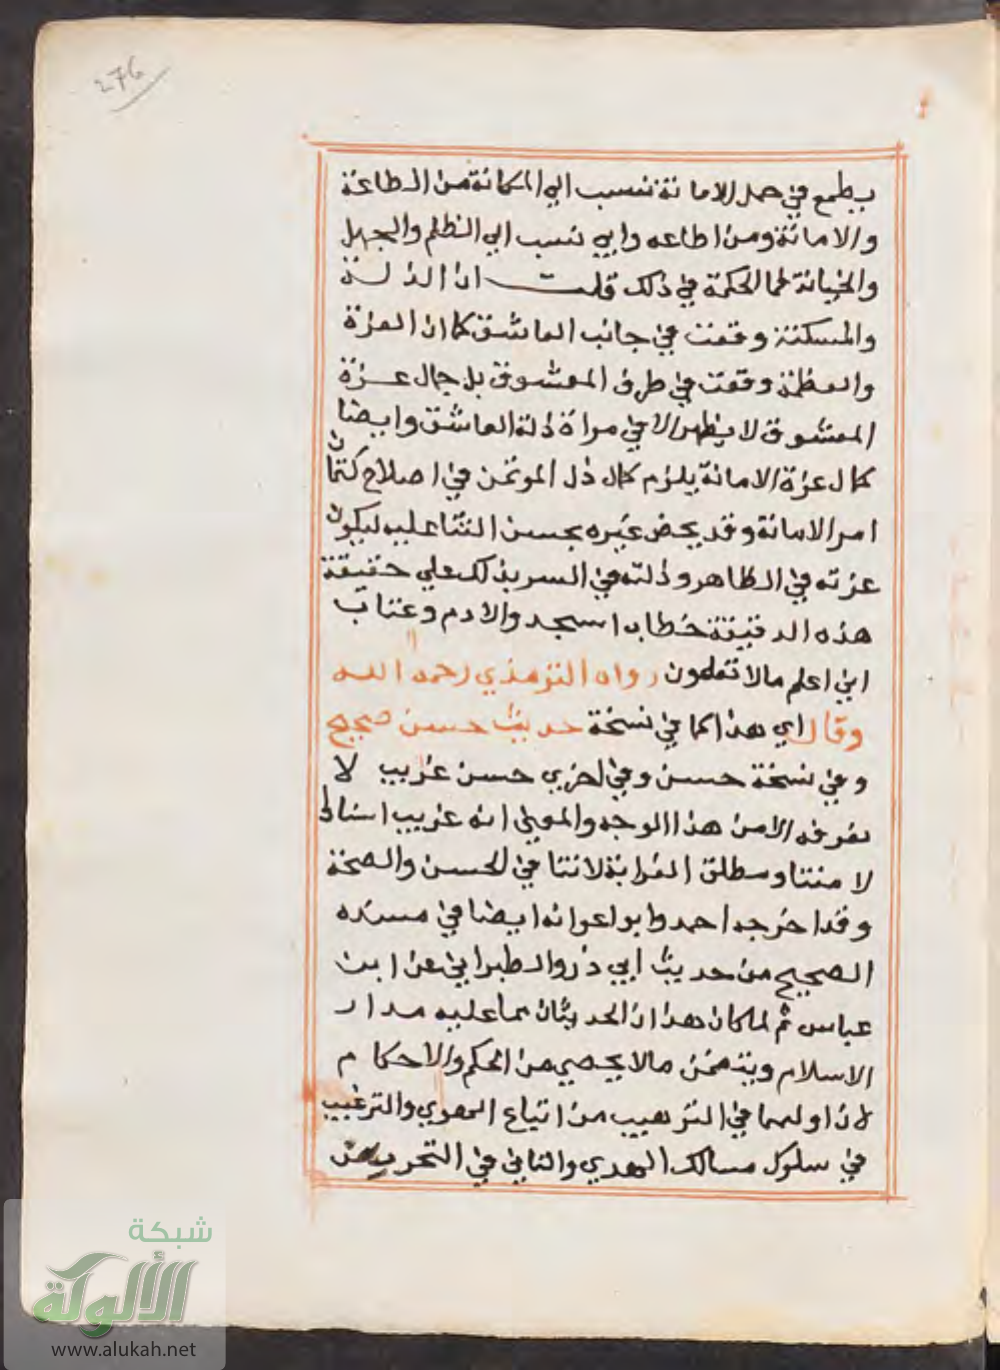 276
يطمع في حمل الامانة تنسب الي المكانة من الطاعة
والامانة ومن اطاعه وابي نسب الي الظلم والجهل
والخيانة فما الحكمة في ذلك قلت ان الذلة
والمسكنة وقعت في جانب العاشق كما ان العزة
والعظمة وقعت في طرف المعشوق بل جمال عزة
المعشوق لا يظهر الا في مراة ذلة العاشق وايضا
كمال عزة الامانة يلزم كمال ذل الموتمن في اصلاح كتمان
امر الامانة وقد يحض غيره بحسن الثنا عليه ليكون
عزته في الظاهر وذلته في السر يدلك علي حقيقة
هذه الدقيقة خطاب اسجدوا لادم وعتاب
اني اعلم مالا تعلمون رواه الترمذي رحمه الله
وقال اي هذا كما في نسخة حديث حسن صحيح
وفي نسخة حسن وفي اخري حسن غريب لا
نعرفه الا من هذا الوجه والمعني انه غريب اسنادا
لا متنا ومطلق الغرابة لا تنافي الحسن والصحة
وقد اخرجه احمد وابو اعوانه ايضا في مسنده
الصحيح من حديث ابي ذر والطبراني عن ابن
عباس ثم لما كان هذان الحديثان مما عليه مدار
الاسلام ويتضمن مالا يحصي من الحكم والاحكام
لان اولهما في الترهيب من اتباع الهوي والترغيب
في سلوك مسالك الهدي والثاني في التحريض
شبكة
الألوكة
www.alukah.net